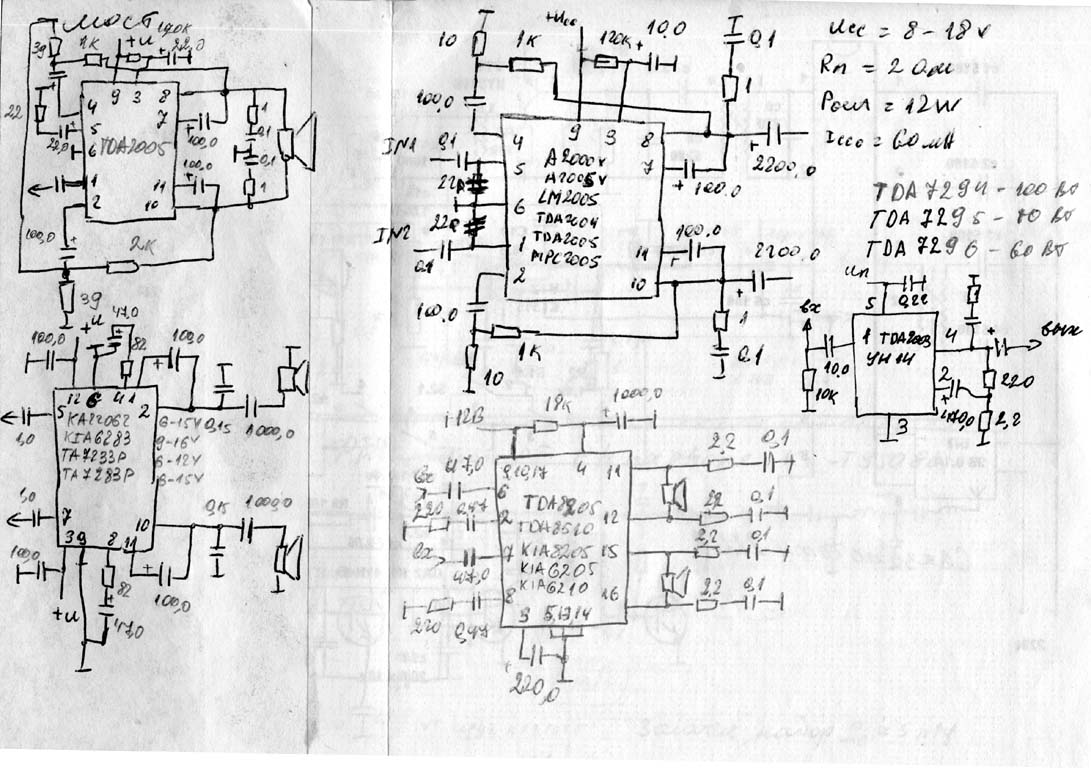 мост
+U
120к
39
1к
22,0
22
9 3 8
4
7
5
TDA2005
6
100,0
1
0,1
22,0
100,0
0,1
1
11
1
2
10
100,0
2к
39
10
1к
+Ucc
120к
10,0
0,1
1
100,0
9 3 8
4
7
IN1
0,1
5
A2000V
A2005V
LM2005
TDA2004
TDA2005
MPC2005
22р
6
22р
IN2
0,1
1
2
100,0
2200,0
100,0
2200,0
11
10
100,0
1к
10
1
0,1
Ucc = 8-18v
Rn = 2 Ом
Pout = 12W
Icco = 60мА
TDA 7294 - 100 Вт
TDA 7295 - 80 Вт
TDA 7296 - 60 Вт
Uп
5
0,22
вх
1
TDA2003
УН14
4
вых
10,0
2
220
10к
470,0
2,2
3
100,0
+U
47,0
82
100,0
12 6 4 1
5
2
KA22062
KIA6283
TA7233P
TA7283P
6-15V
9-16V
6-12V
6-15V
1,0
0,15
1000,0
1,0
7
10
0,15
1000,0
3 9 8 11
100,0
82
100,0
+U
47,0
+12В
18к
1000,0
9,10,17
4
11
вх
47,0
6
TDA8205
TDA8510
KIA8205
KIA6205
KIA6210
220
0,47
2
12
вх
47,0
7
15
220
0,47
8
16
3
5,13,14
220,0
2,2
0,1
2,2
0,1
2,2
0,1
2,2
0,1